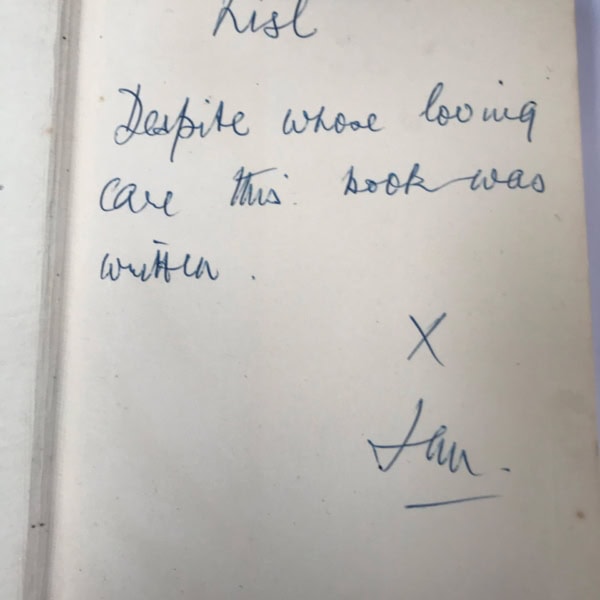 Lisl
Despite whose loving
care this book was
written.
X
Ian.